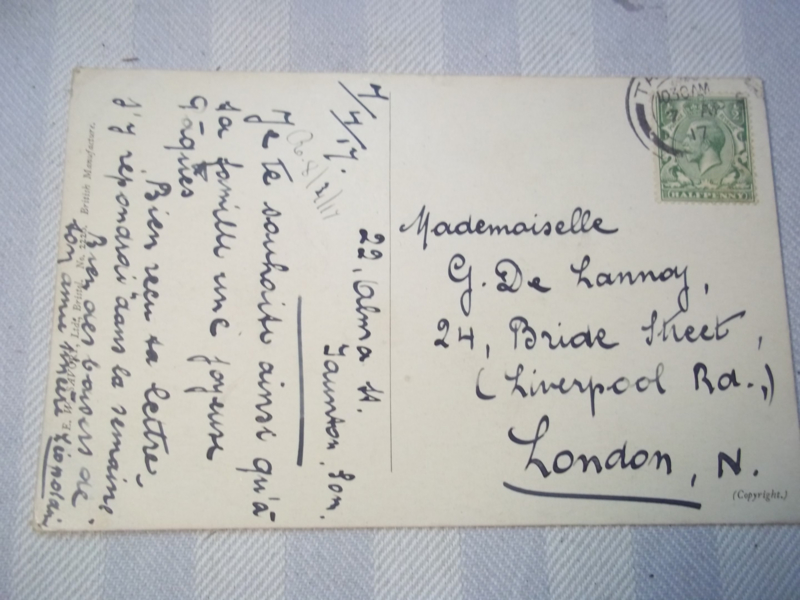 22, Alma St.
Taunton, Som.
7/4/17.
Je te souhaite ainsi qu'à
ta famille une joyeuse
Pâques
Bien reçu ta lettre
J'y répondrai dans la semaine
Bien des baisers de
ton amie
Mademoiselle
G. De Lannoy,
24, Bride Street,
(Liverpool Rd.,)
London, N.
(Copyright.)
HALFPENNY
10 30 AM
7 AP
17
British Manufacture.